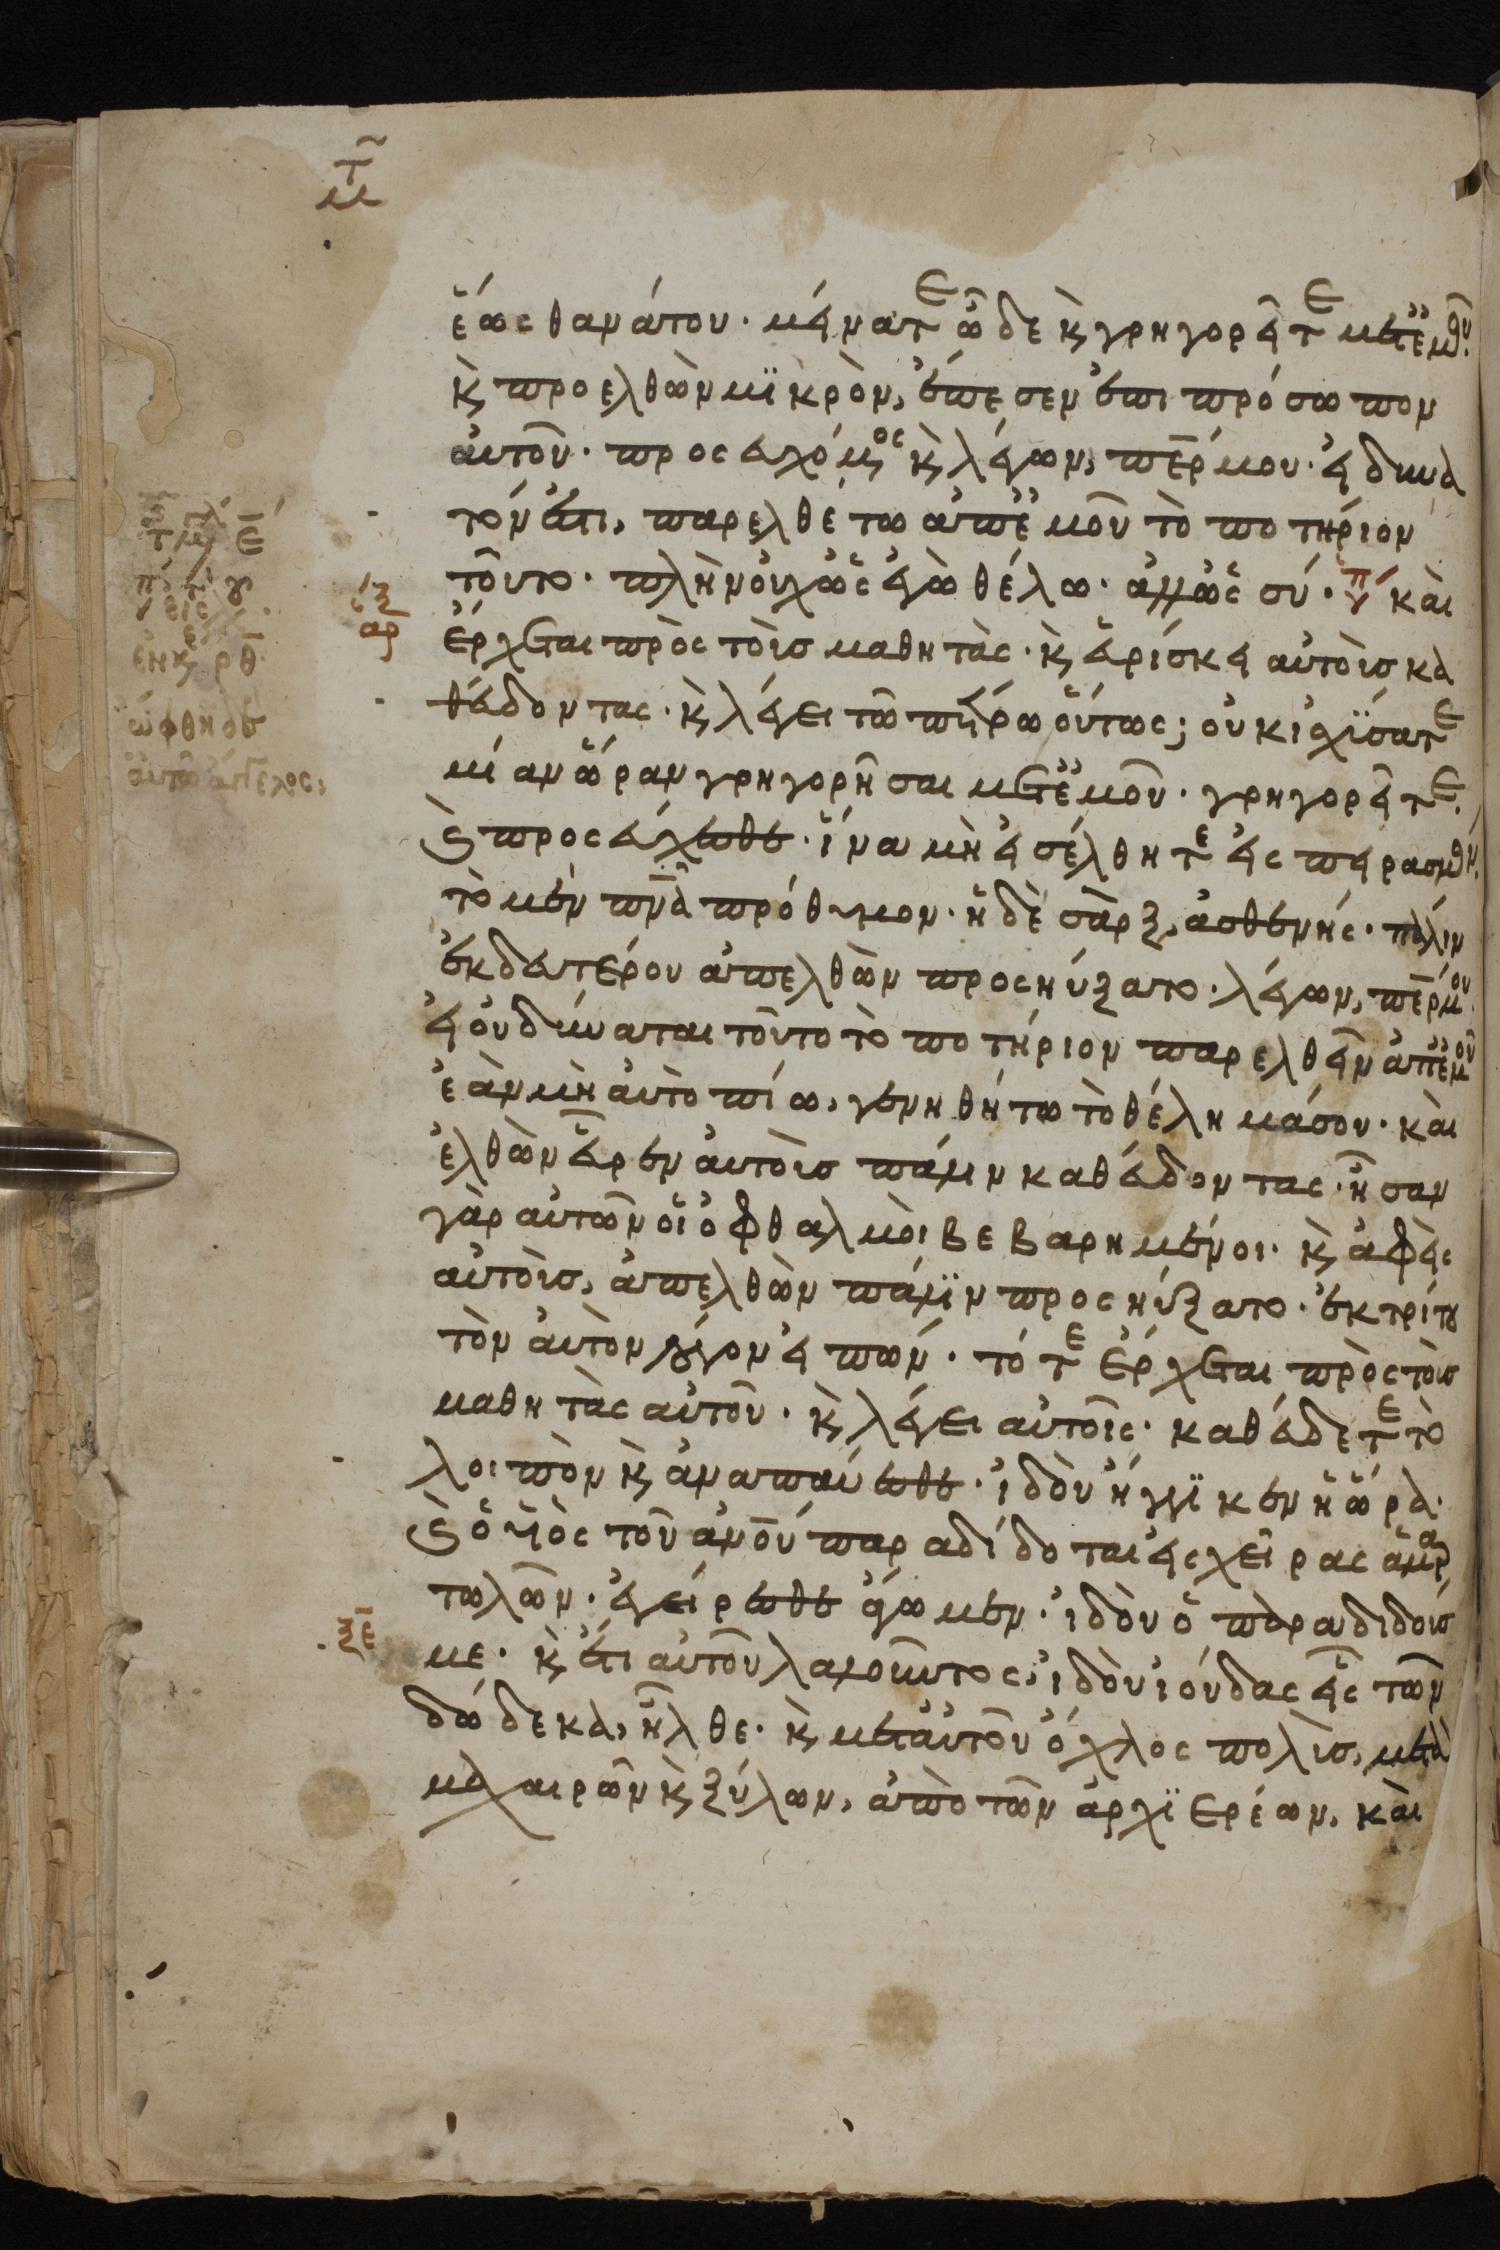 ἕως θανάτου· μείνατε ὧδε κ̀ γρηγορεῖτε μετ' ἐμοῦ·
κ̀ προελθὼν μϊκρὸν, ἔπεσεν ἐπι πρόσωπον
αὐτοῦ· προσευχόμενος κ̀ λέγων, πε̅ρ μου· εἰ δυνα
τόν ἐστι, παρελθέτω ἀπ' ἐμοῦ τὸ ποτήριον
τοῦτο· πλὴν οὐχ ὡς ἐγὼ θέλω· ἀλλ' ὡς σύ· καὶ
ἔρχεται πρὸς τοὺσ μαθητὰς· κ̀ εὑρίσκει αὐτοὺσ κα
θεύδοντας· κ̀ λέγει τῶ πέτρω οὕτως; οὐκ ἰσχϊσατε
μίαν ὥραν γρηγορῆσαι μετ' ἐμοῦ· γρηγορεῖτε·
κ̀ προσεύχεσθε· ἵνα μὴ εἰσέλθητε εἰς πειρασμόν·
τὸ μὲν πν̅α πρόθυμον· ἡ δὲ σὰρξ, ἀσθενής· πάλιν
ἐκ δευτέρου ἀπελθὼν προσηύξατο· λέγων, πε̅ρ μου·
εἰ οὐ δύναται τοῦτο τὸ ποτήριον παρελθεῖν ἀπ' ἐμοῦ
ἐὰν μὴ αὐτὸ πίω, γενηθήτω τὸ θέλημά σου· καὶ
ἐλθὼν εὗρεν αὐτοὺσ πάλιν καθεύδοντας· ἦσαν
γὰρ αὐτῶν οἱ ὀφθαλμοὶ βεβαρημένοι· κ̀ ἀφεὶς
αὐτοὺσ, ἀπελθὼν πάλϊν προσηύξατο· ἐκ τρίτου
τὸν αὐτὸν λόγον εἰπών· τότε ἔρχεται πρὸς τοὺσ
μαθητὰς αὐτοῦ· κ̀ λέγει αὐτοῖς· καθεύδετε τὸ
λοιπὸν κ̀ ἀναπαύεσθε· ἰδοὺ ἤγγϊκεν ἡ ὥρα·
κ̀ ὁ υἱὸς τοῦ ἀν̅ου παραδίδοται εἰς χεῖρας ἁμαρ
τωλῶν· ἐγείρεσθε ἄγωμεν· ἰδοὺ ὁ παραδιδούσ
με· κ̀ ἔτι αὐτοῦ λαλοῦντος, ἰδοὺ ἰούδας εἷς τῶν
δώδεκα, ἦλθε· κ̀ μετ' αὐτοῦ ὄχλος πολὺσ, μετὰ
μαχαιρῶν κ̀ ξύλων, ἀπὸ τῶν ἀρχϊερέων, καὶ